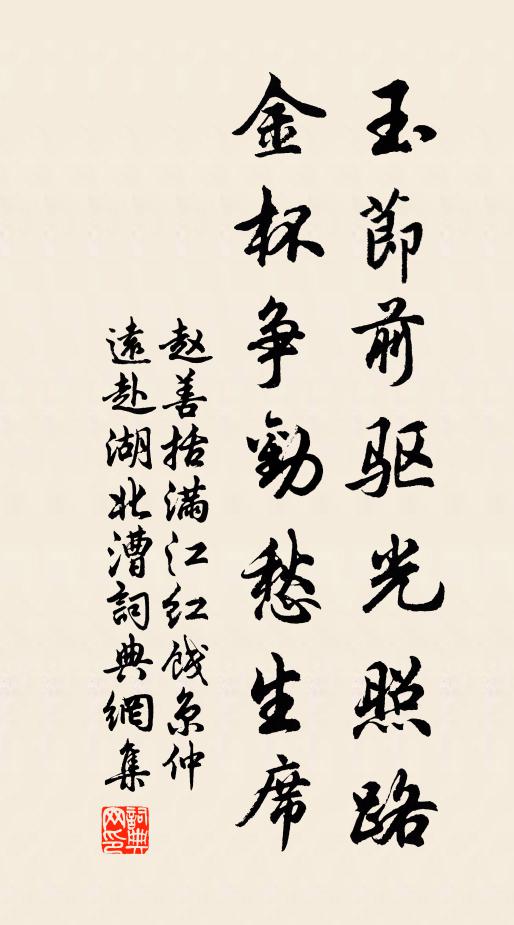 玉節前驱光照路
金杯争勸愁生席
赵善括满江红餞京仲
遠赴湖北漕詞典網集
詞典
网印